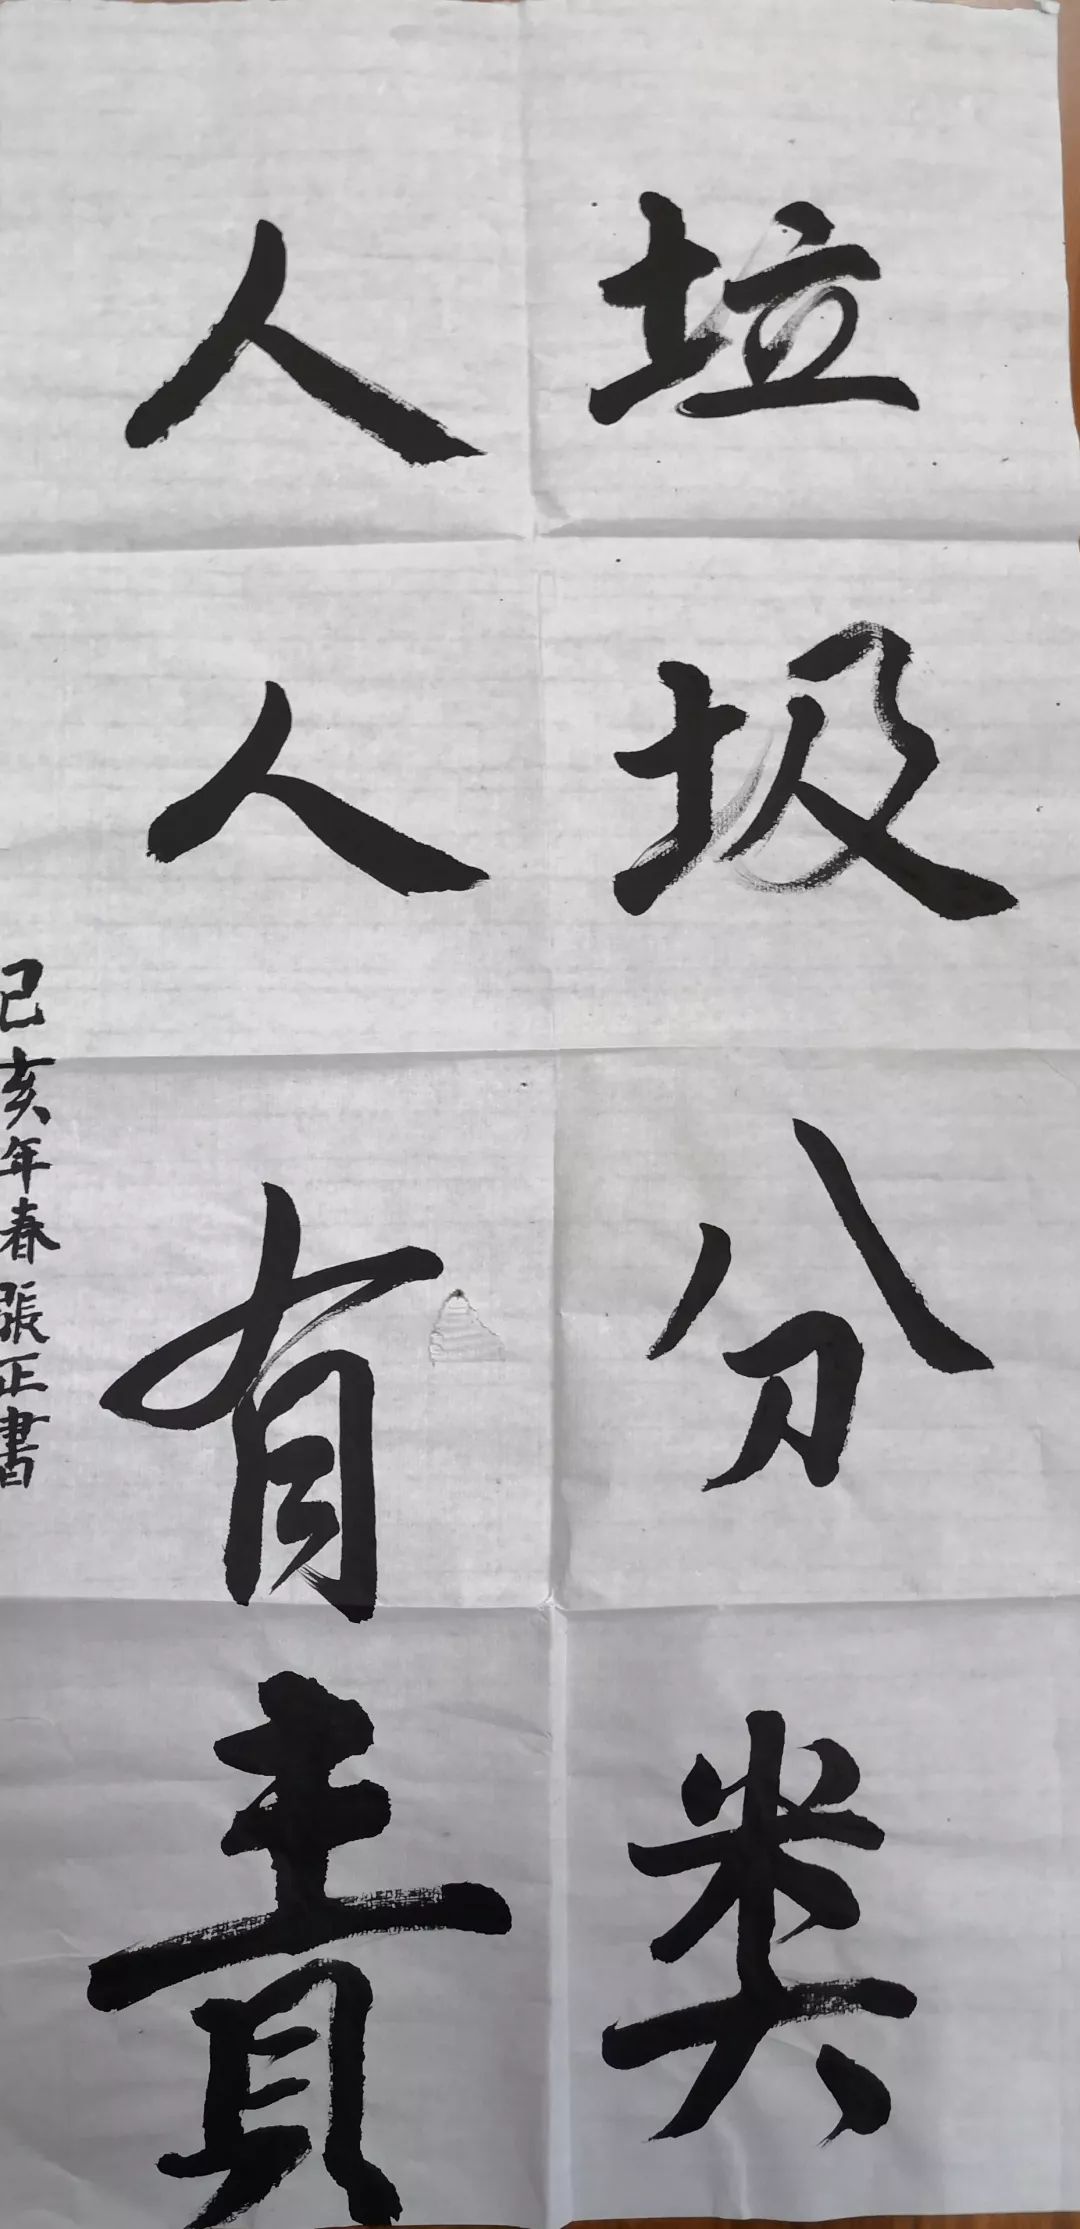 垃圾分类
人人有责
己亥年春張正書